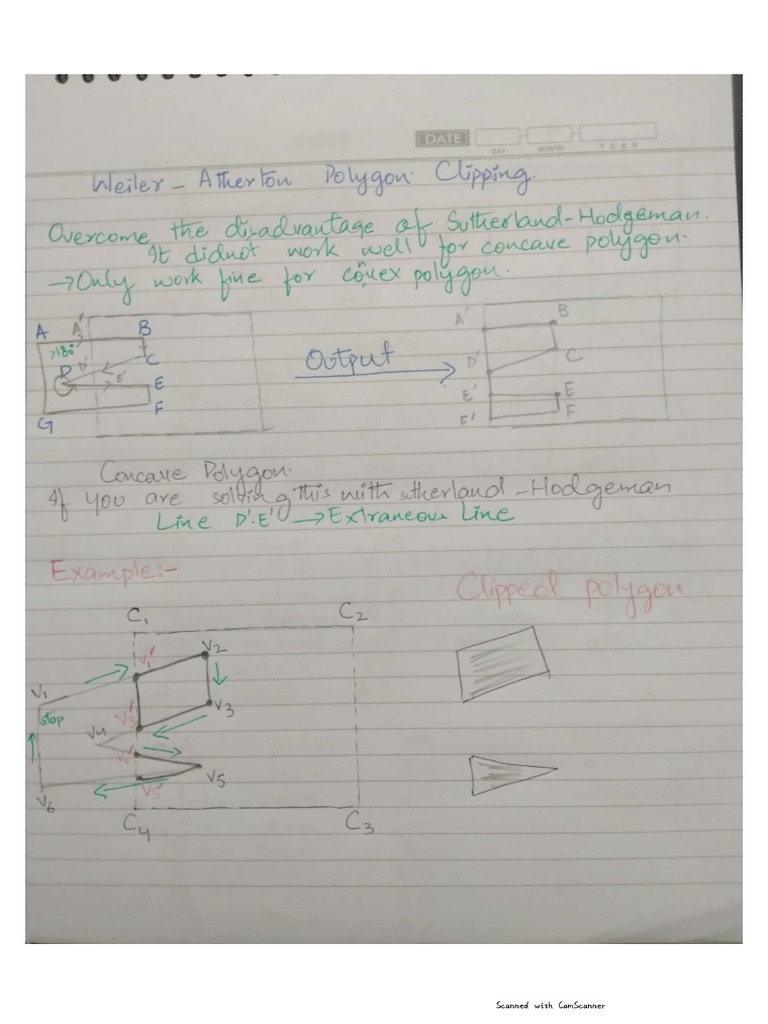 DATE
DAY MONTH YEAR
Weiler - Atherton Polygon Clipping.
Overcome the disadvantage of Sutherland-Hodgeman.
It didnot work well for concave polygon.
→ Only work fine for convex polygon.
A A' B
>180°
D D' C
E' E
F
G
Output
A' B
D' C
E' E
F' F
Concave Polygon.
If you are solving this with sutherland - Hodgeman
Line D'.E' → Extraneous Line
Example:-
Clipped polygon
C1 C2
V1' V2
V1
stop V3' V3
V4 V4'
V5
V5'
V6
C4 C3
Scanned with CamScanner